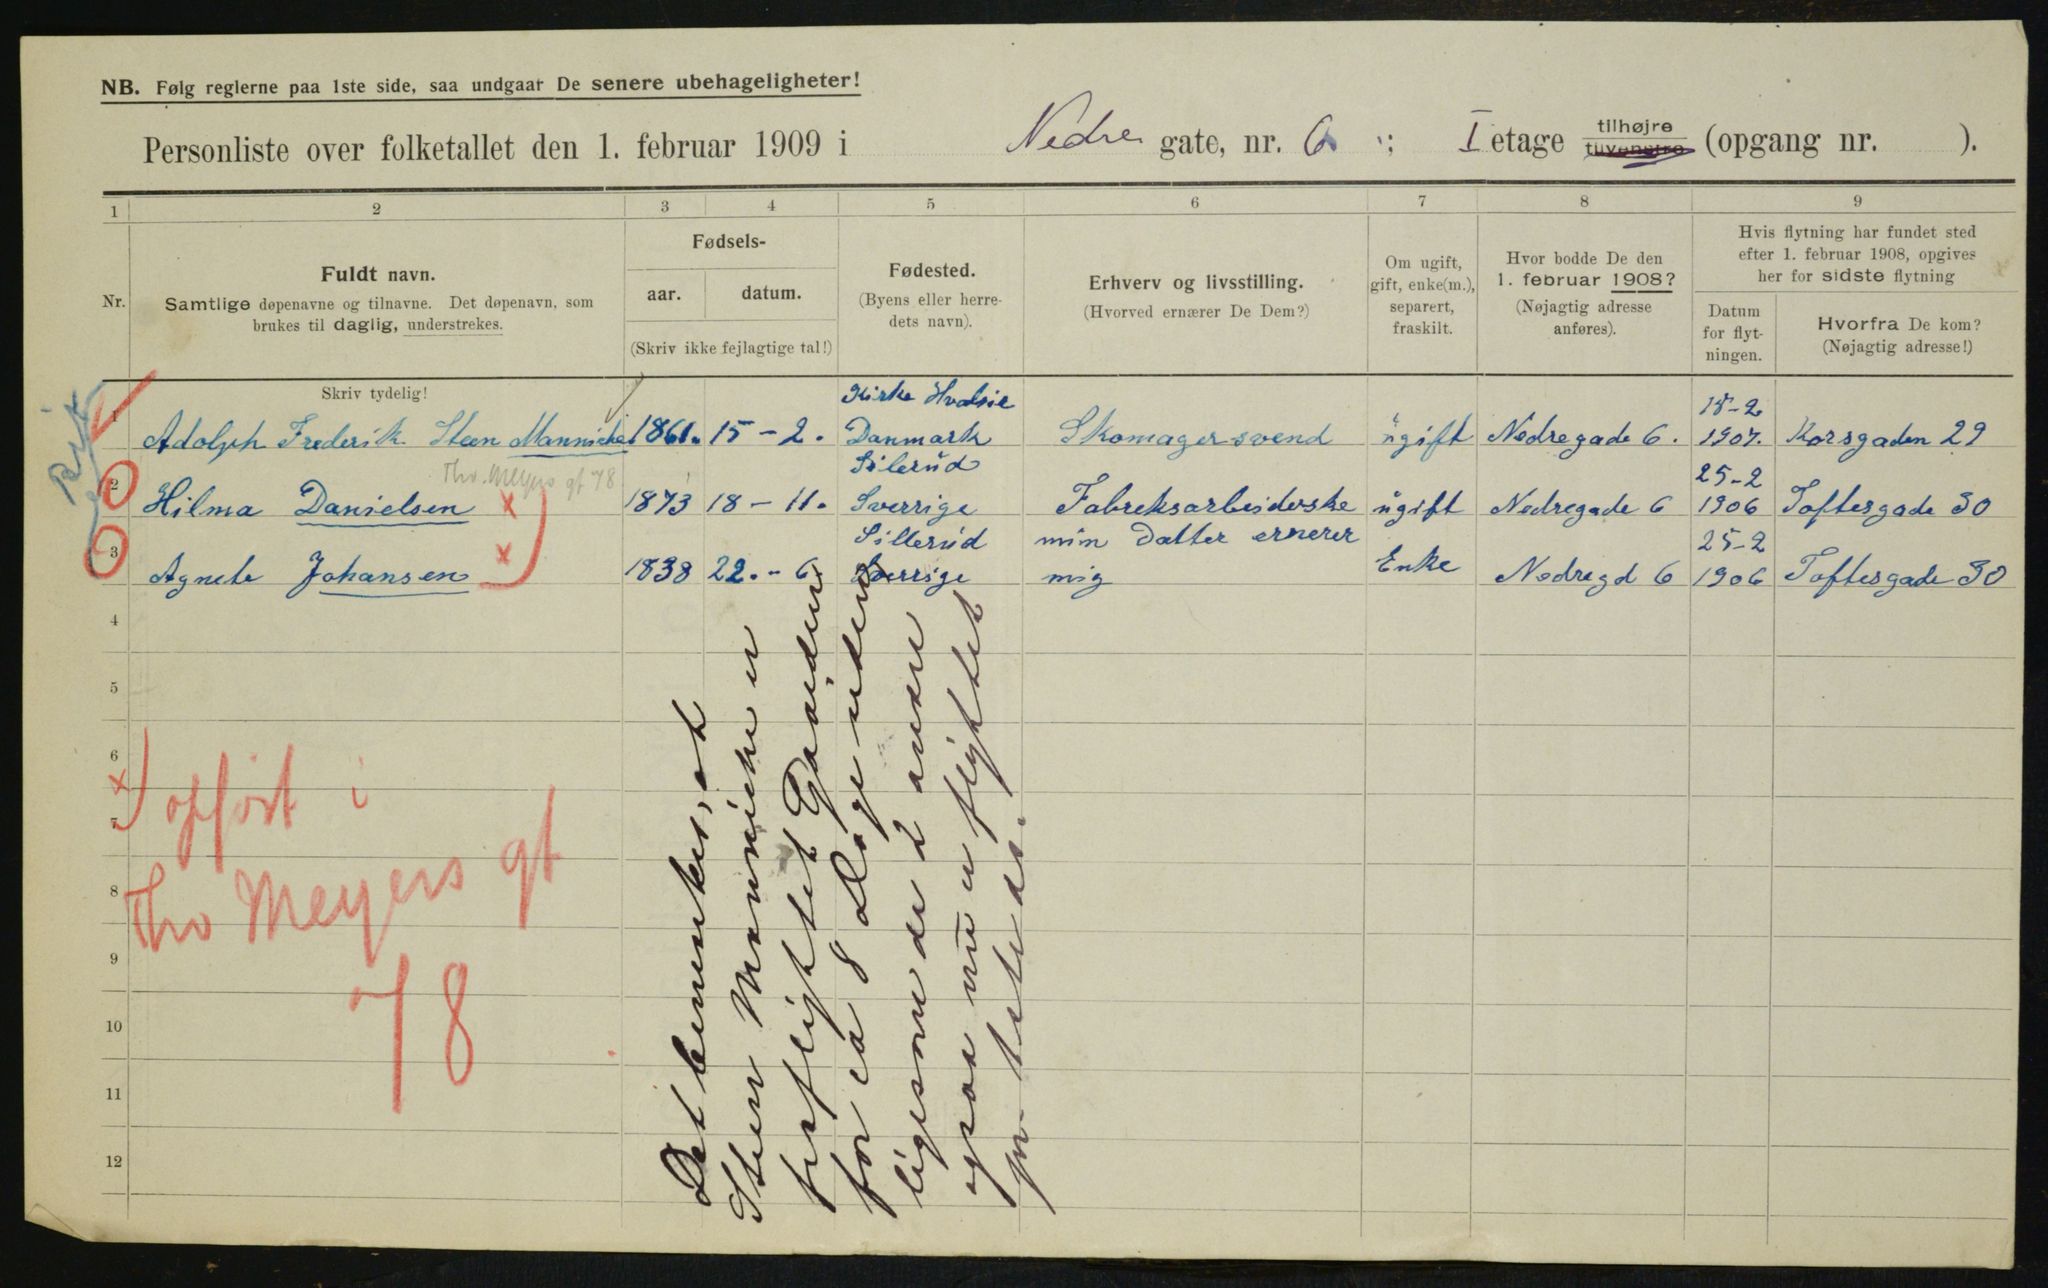 NB. Følg reglerne paa 1ste side, saa undgaar De senere ubehageligheter!
Personliste over folketallet den 1. februar 1909 i Nedre gate, nr. 6 ; I etage tilhøjre tilvenstre (opgang nr. ).
1 2 3 4 5 6 7 8 9
Nr.
Fuldt navn.
Samtlige døpenavne og tilnavne. Det døpenavn, som
brukes til daglig, understrekes.
Fødsels-
aar. datum.
(Skriv ikke fejlagtige tal!)
Fødested.
(Byens eller herre-
dets navn).
Erhverv og livsstilling.
(Hvorved ernærer De Dem?)
Om ugift,
gift, enke(m.),
separert,
fraskilt.
Hvor bodde De den
1. februar 1908?
(Nøjagtig adresse
anføres).
Hvis flytning har fundet sted
efter 1. februar 1908, opgives
her for sidste flytning
Datum
for flyt-
ningen.
Hvorfra De kom?
(Nøjagtig adresse!)
Skriv tydelig!
Kirke Hvalsie 15-2
1 Adolph Frederik Steen Manniche 1861. 15 - 2. Danmark Skomagersvend ugift Nedregade 6. 1907. Korsgaden 29
Tho. Meyers gt 78 Silerud 25-2
2 Hilma Danielsen x 1873 18 - 11. Sverrige Fabreksarbeiderske ugift Nedregade 6 1906 Toftesgade 30
Sillerud min Datter ernerer 25-2
3 Agnete Johansen x 1838 22. - 6 Sverrige mig Enke Nedregd 6 1906 Toftesgade 30
4
5
6
7
8
9
10
11
12
x) opført i
Tho Meyers gt
78
Det bemerkes, at
Steen Manniche er
fraflyttet Gaarden
for ca 8 Dage siden
ligesom de 2 andre
ogsaa nu er flyttet